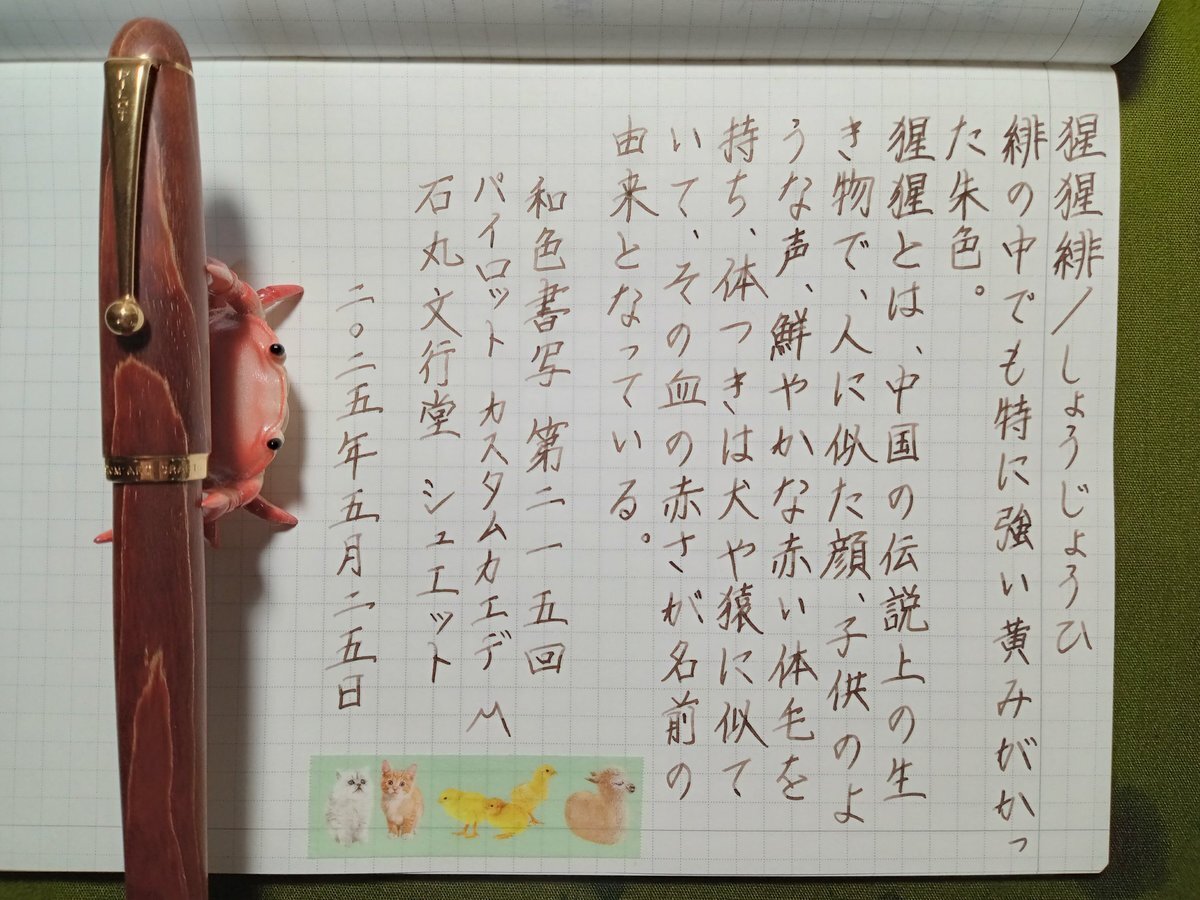 猩猩緋/しょうじょうひ
緋の中でも特に強い黄みがかっ
た朱色。
猩猩とは、中国の伝説上の生
き物で、人に似た顔、子供のよ
うな声、鮮やかな赤い体毛を
持ち、体つきは犬や猿に似て
いて、その血の赤さが名前の
由来となっている。
和色書写 第二一五回
パイロット カスタムカエデ M
石丸文行堂 シュエット
二〇二五年五月二五日
PILOT